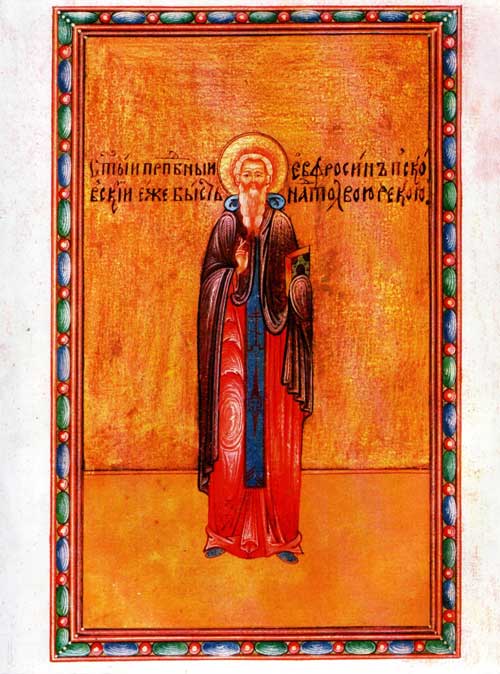 СТ҃ЫИ ПРПБ҃НЫИ ЕВФРОСИ́НЪ ПСКО́
ВСКІИ ЕЖЕ БЫ́СТЬ НАТОЛВОЮ РЕКОЮ.